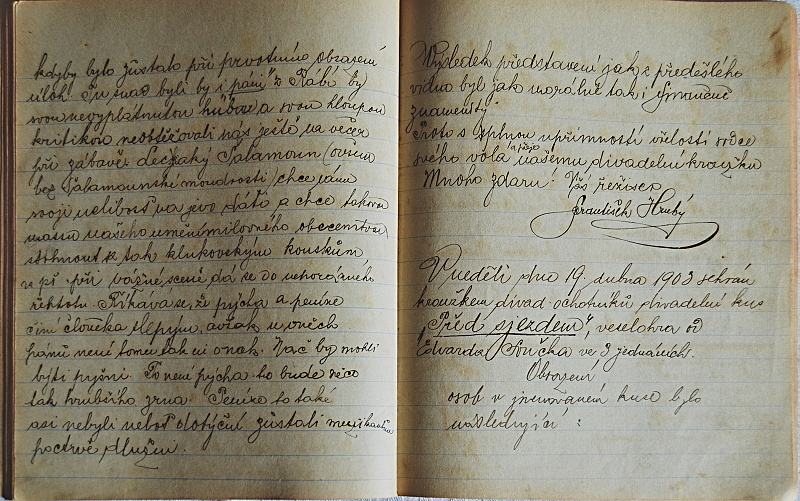 kdyby bylo zůstalo při prvotním obrazení
úloh. Tu snad byli by i páni z Rábí by
svou nevyplatnutou hubou a svou hloupou
kritikou neobtěžovali nás ještě na večer
při zábavě
bez Šalamounské moudrosti) chce
svoji nelibost na jevo dáti a chce takovou
našeho umění milovného obecenstva
strhnout k tak klukovským kouskům
že při vážné scéně dá se do nehorázného
řehtotu. Říkává se, že pýcha a peníze
činí člověka slepým, avšak u oněch
pánů není tomu tak ni onak. Nač by mohli
býti pyšni. To není pýcha to bude něco
tak hrubšího zrna. Peníze to také
asi nebyli neboť dotyční zůstali
poctivě dlužni.
Výsledek představení jak z předešlého
vidno byl jak morálně tak i finančně
znamenitý.
Proto s úplnou upřímností vřelostí srdce
svého volá a přeje našemu divadelní kroužku
Mnoho zdaru! Váš režisér
František Hrubý
V neděli dne 19. dubna 1903 sehrán
kroužkem divad. ochotníků divadelní kus
„Před sjezdem", veselohra od
Edvarda Součka ve 3 jednáních.
Obrazení
osob v jmenovaném kuse bylo
následující :